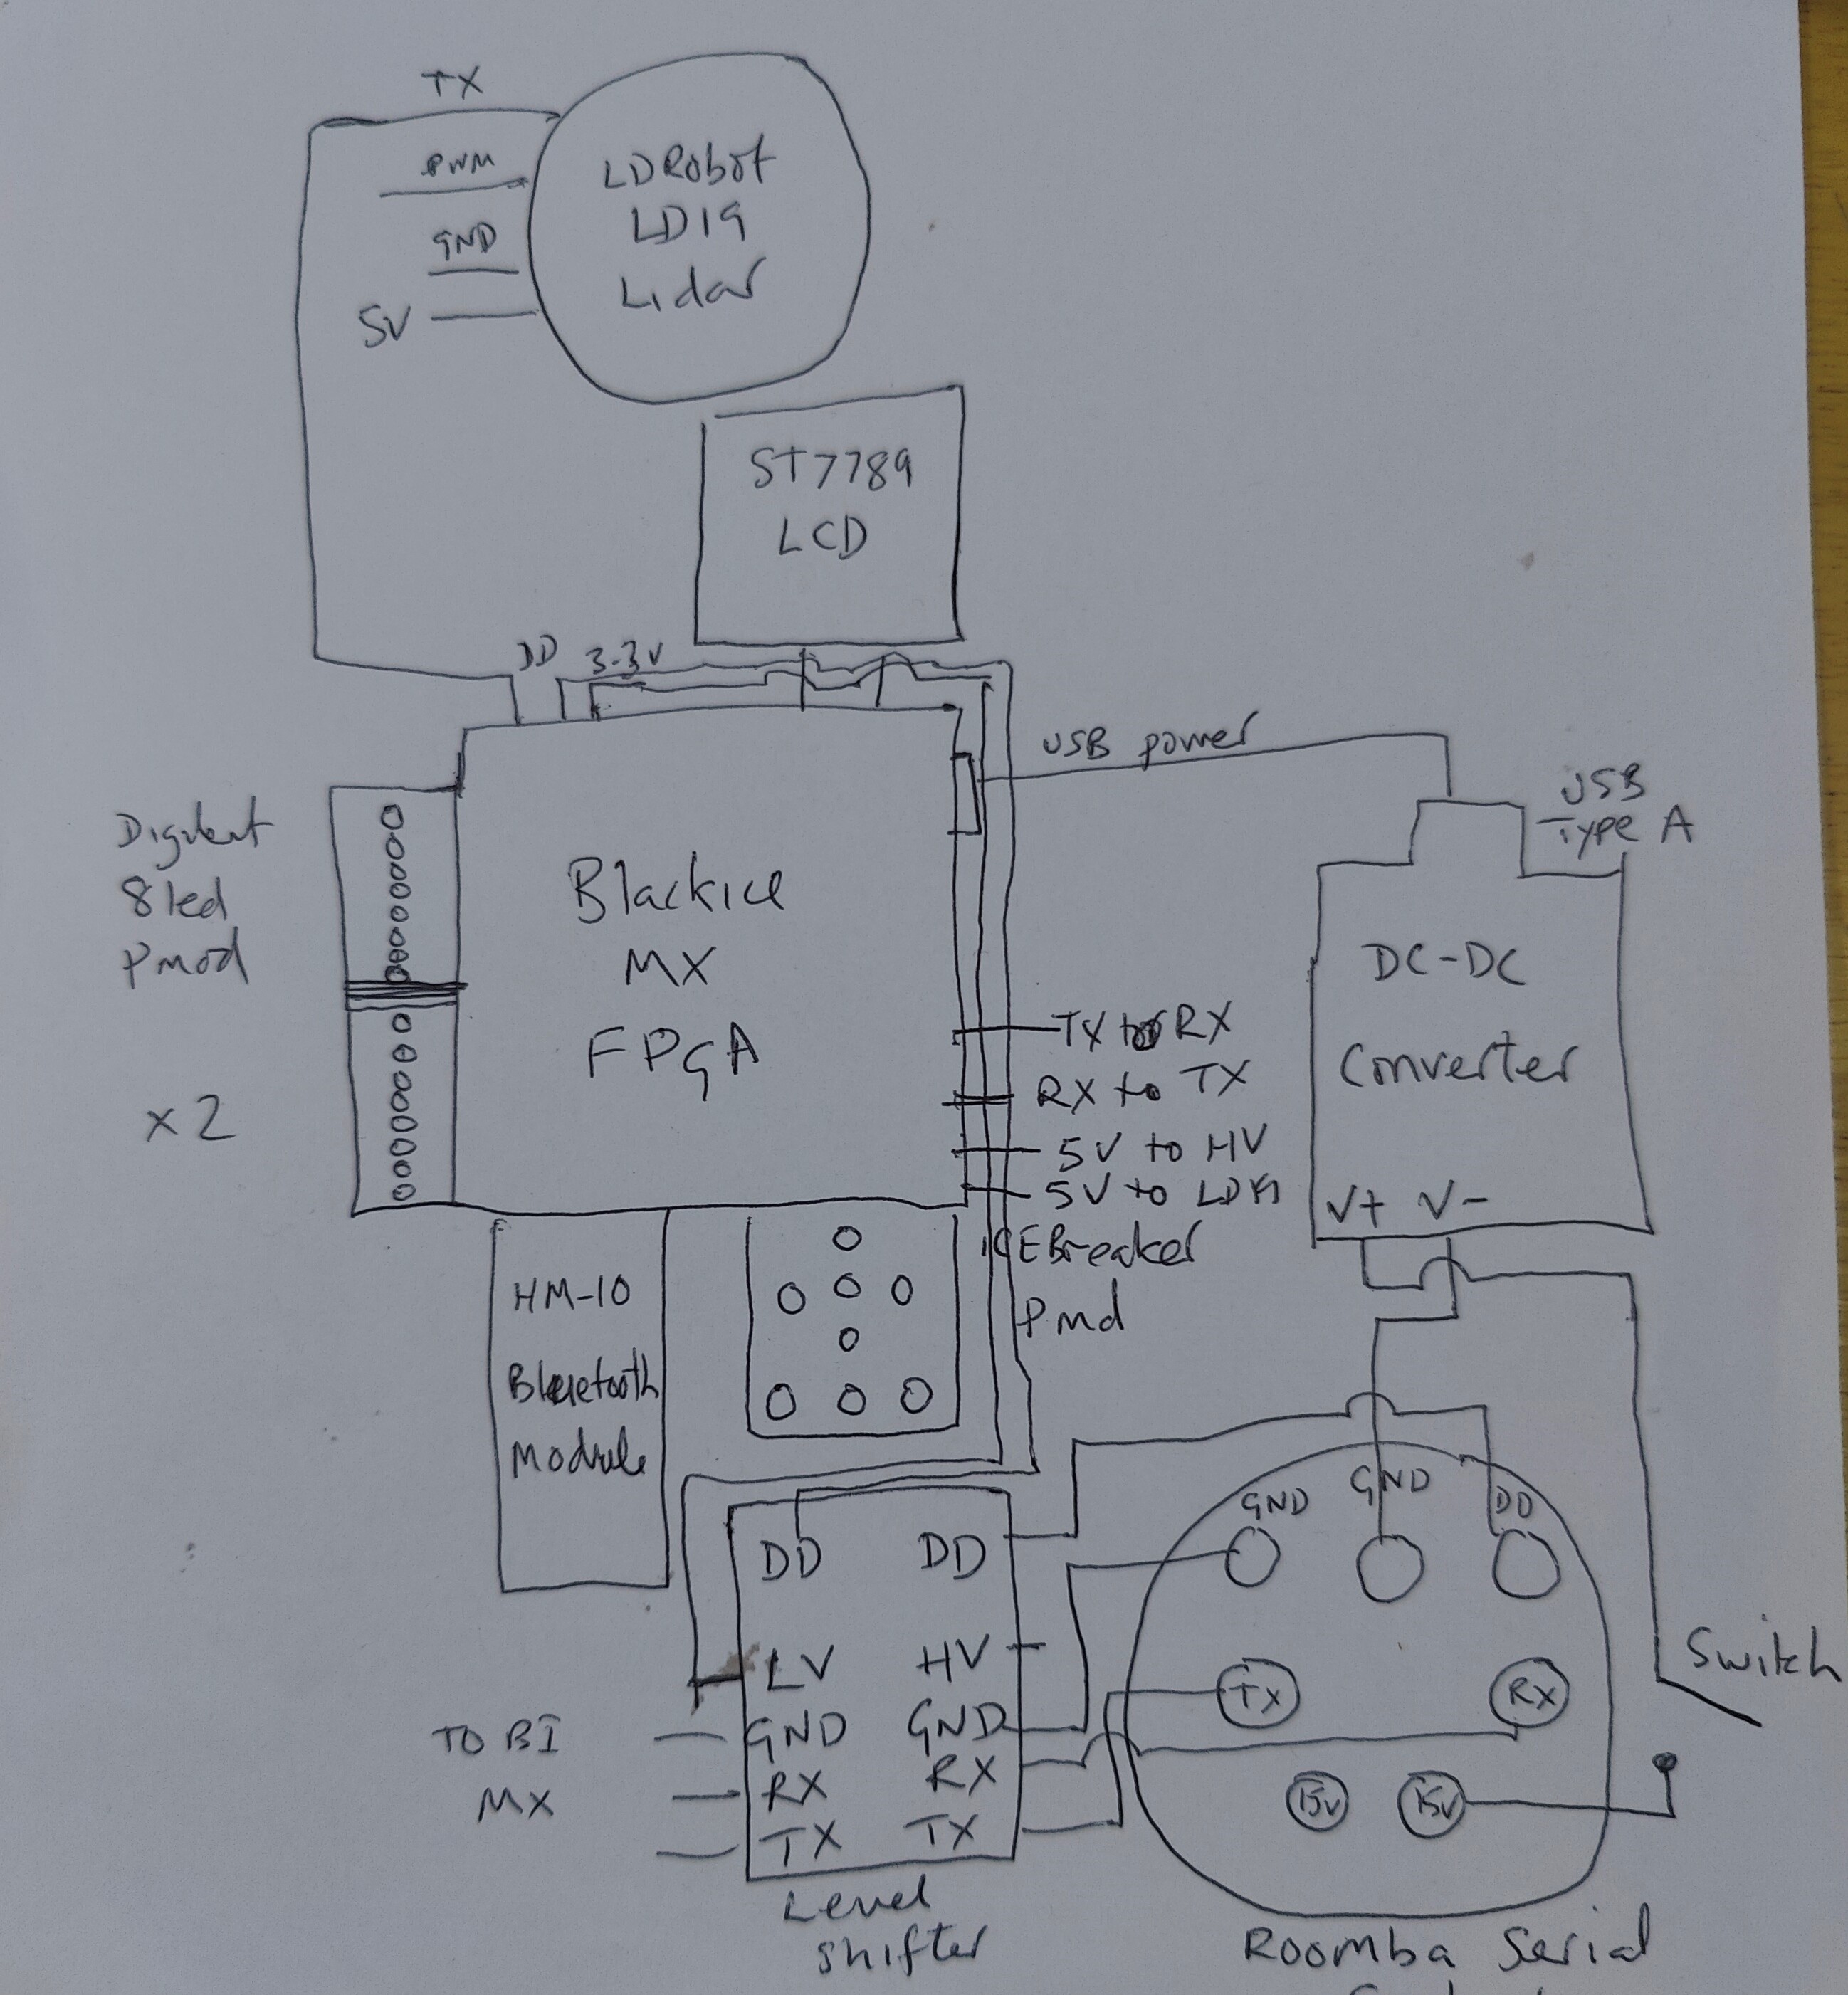 TX
PWM
GND
5V
LDRobot
LD19
Lidar
ST7789
LCD
DD 3.3V
USB power
USB
Type A
Digilent
8 led
Pmod
x 2
Blackice
MX
FPGA
DC-DC
Converter
V+ V-
TX to RX
RX to TX
5V to HV
5V to LD19
iCEBreaker
Pmd
HM-10
Bluetooth
Module
DD DD
LV HV
GND GND
RX RX
TX TX
TO BI
MX
Level
Shifter
GND GND DD
TX RX
15V 15V
Switch
Roomba Serial